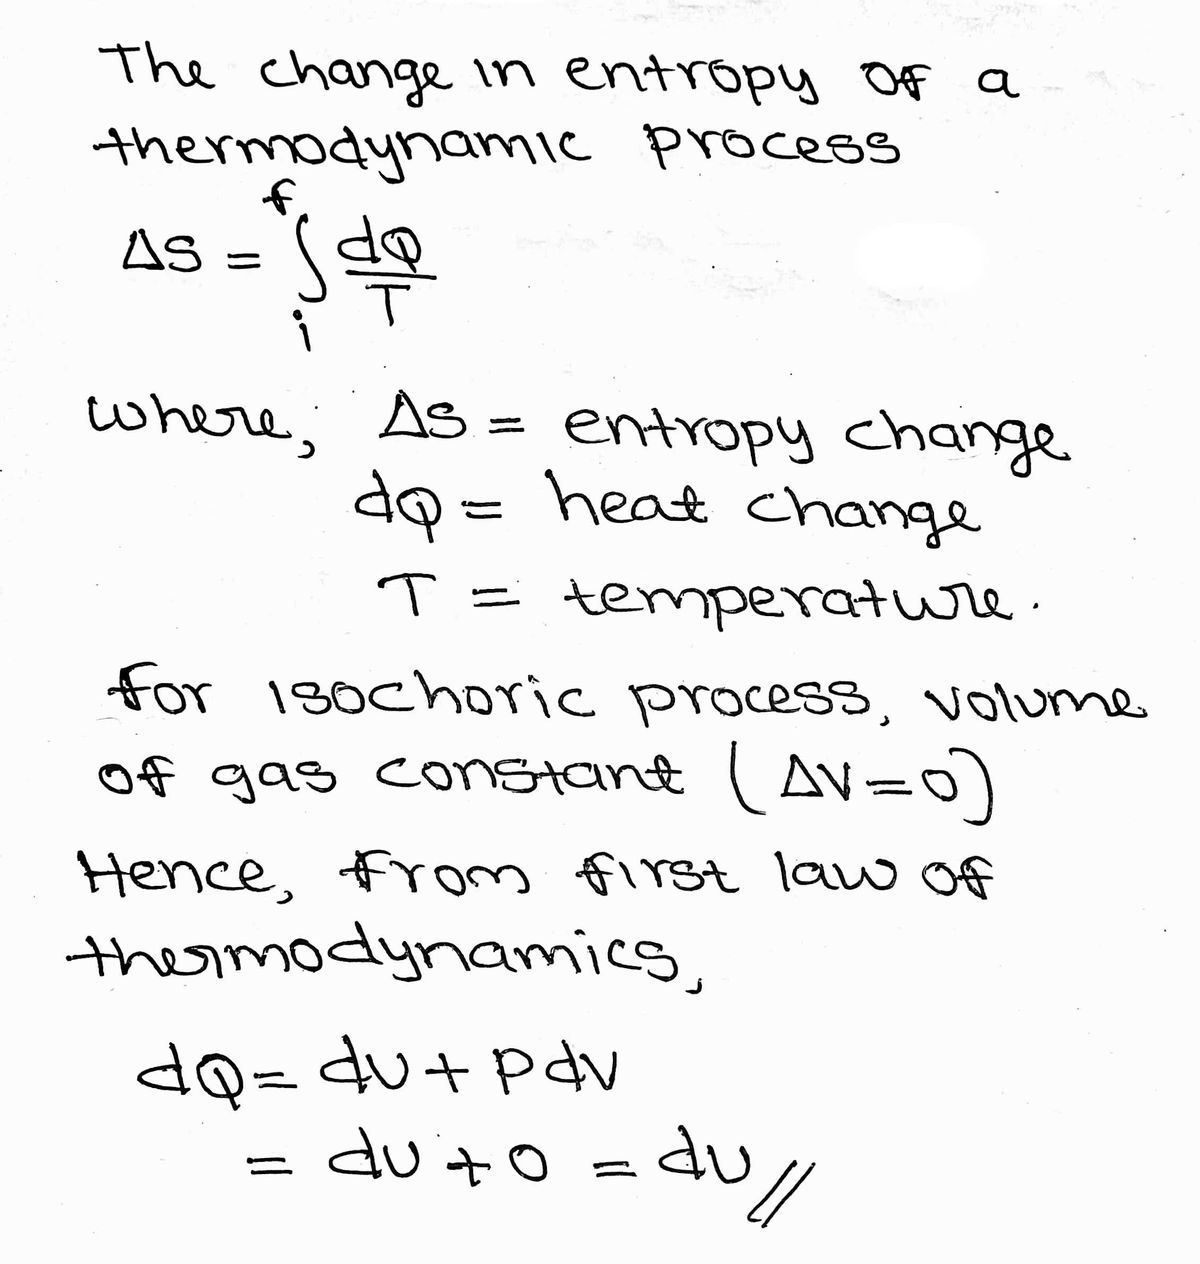 The change in entropy of a
thermodynamic process
ΔS = ∫ᵢᶠ dQ/T
where, ΔS = entropy change
dQ = heat change
T = temperature.
for isochoric process, volume
of gas constant (ΔV=0)
Hence, from first law of
thermodynamics,
dQ = dU + PdV
= dU + 0 = dU //